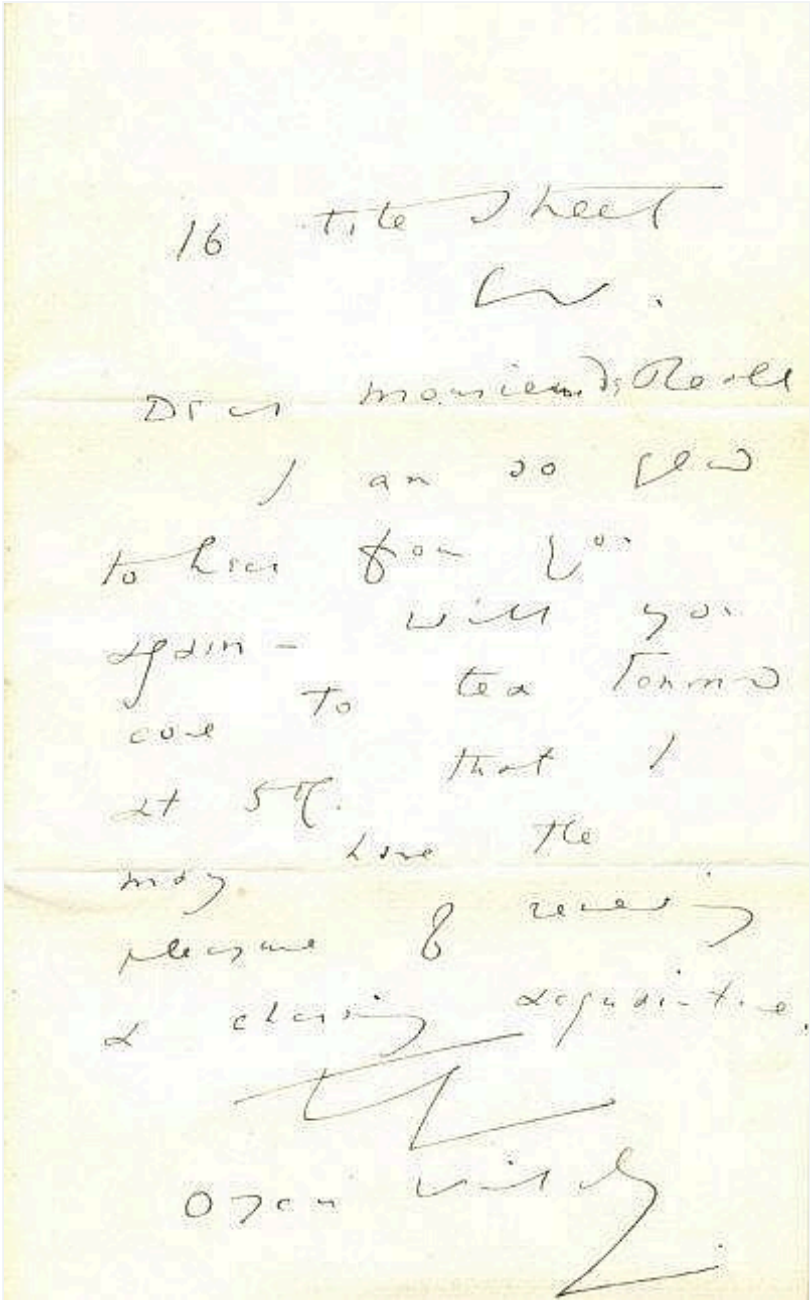 16 Tite Street
Dear Monsieur de
I am so glad
to hear from you
again – will you
come to tea
at 5
that I
may have the
pleasure of renewing
a charming acquaintance.
Oscar Wilde